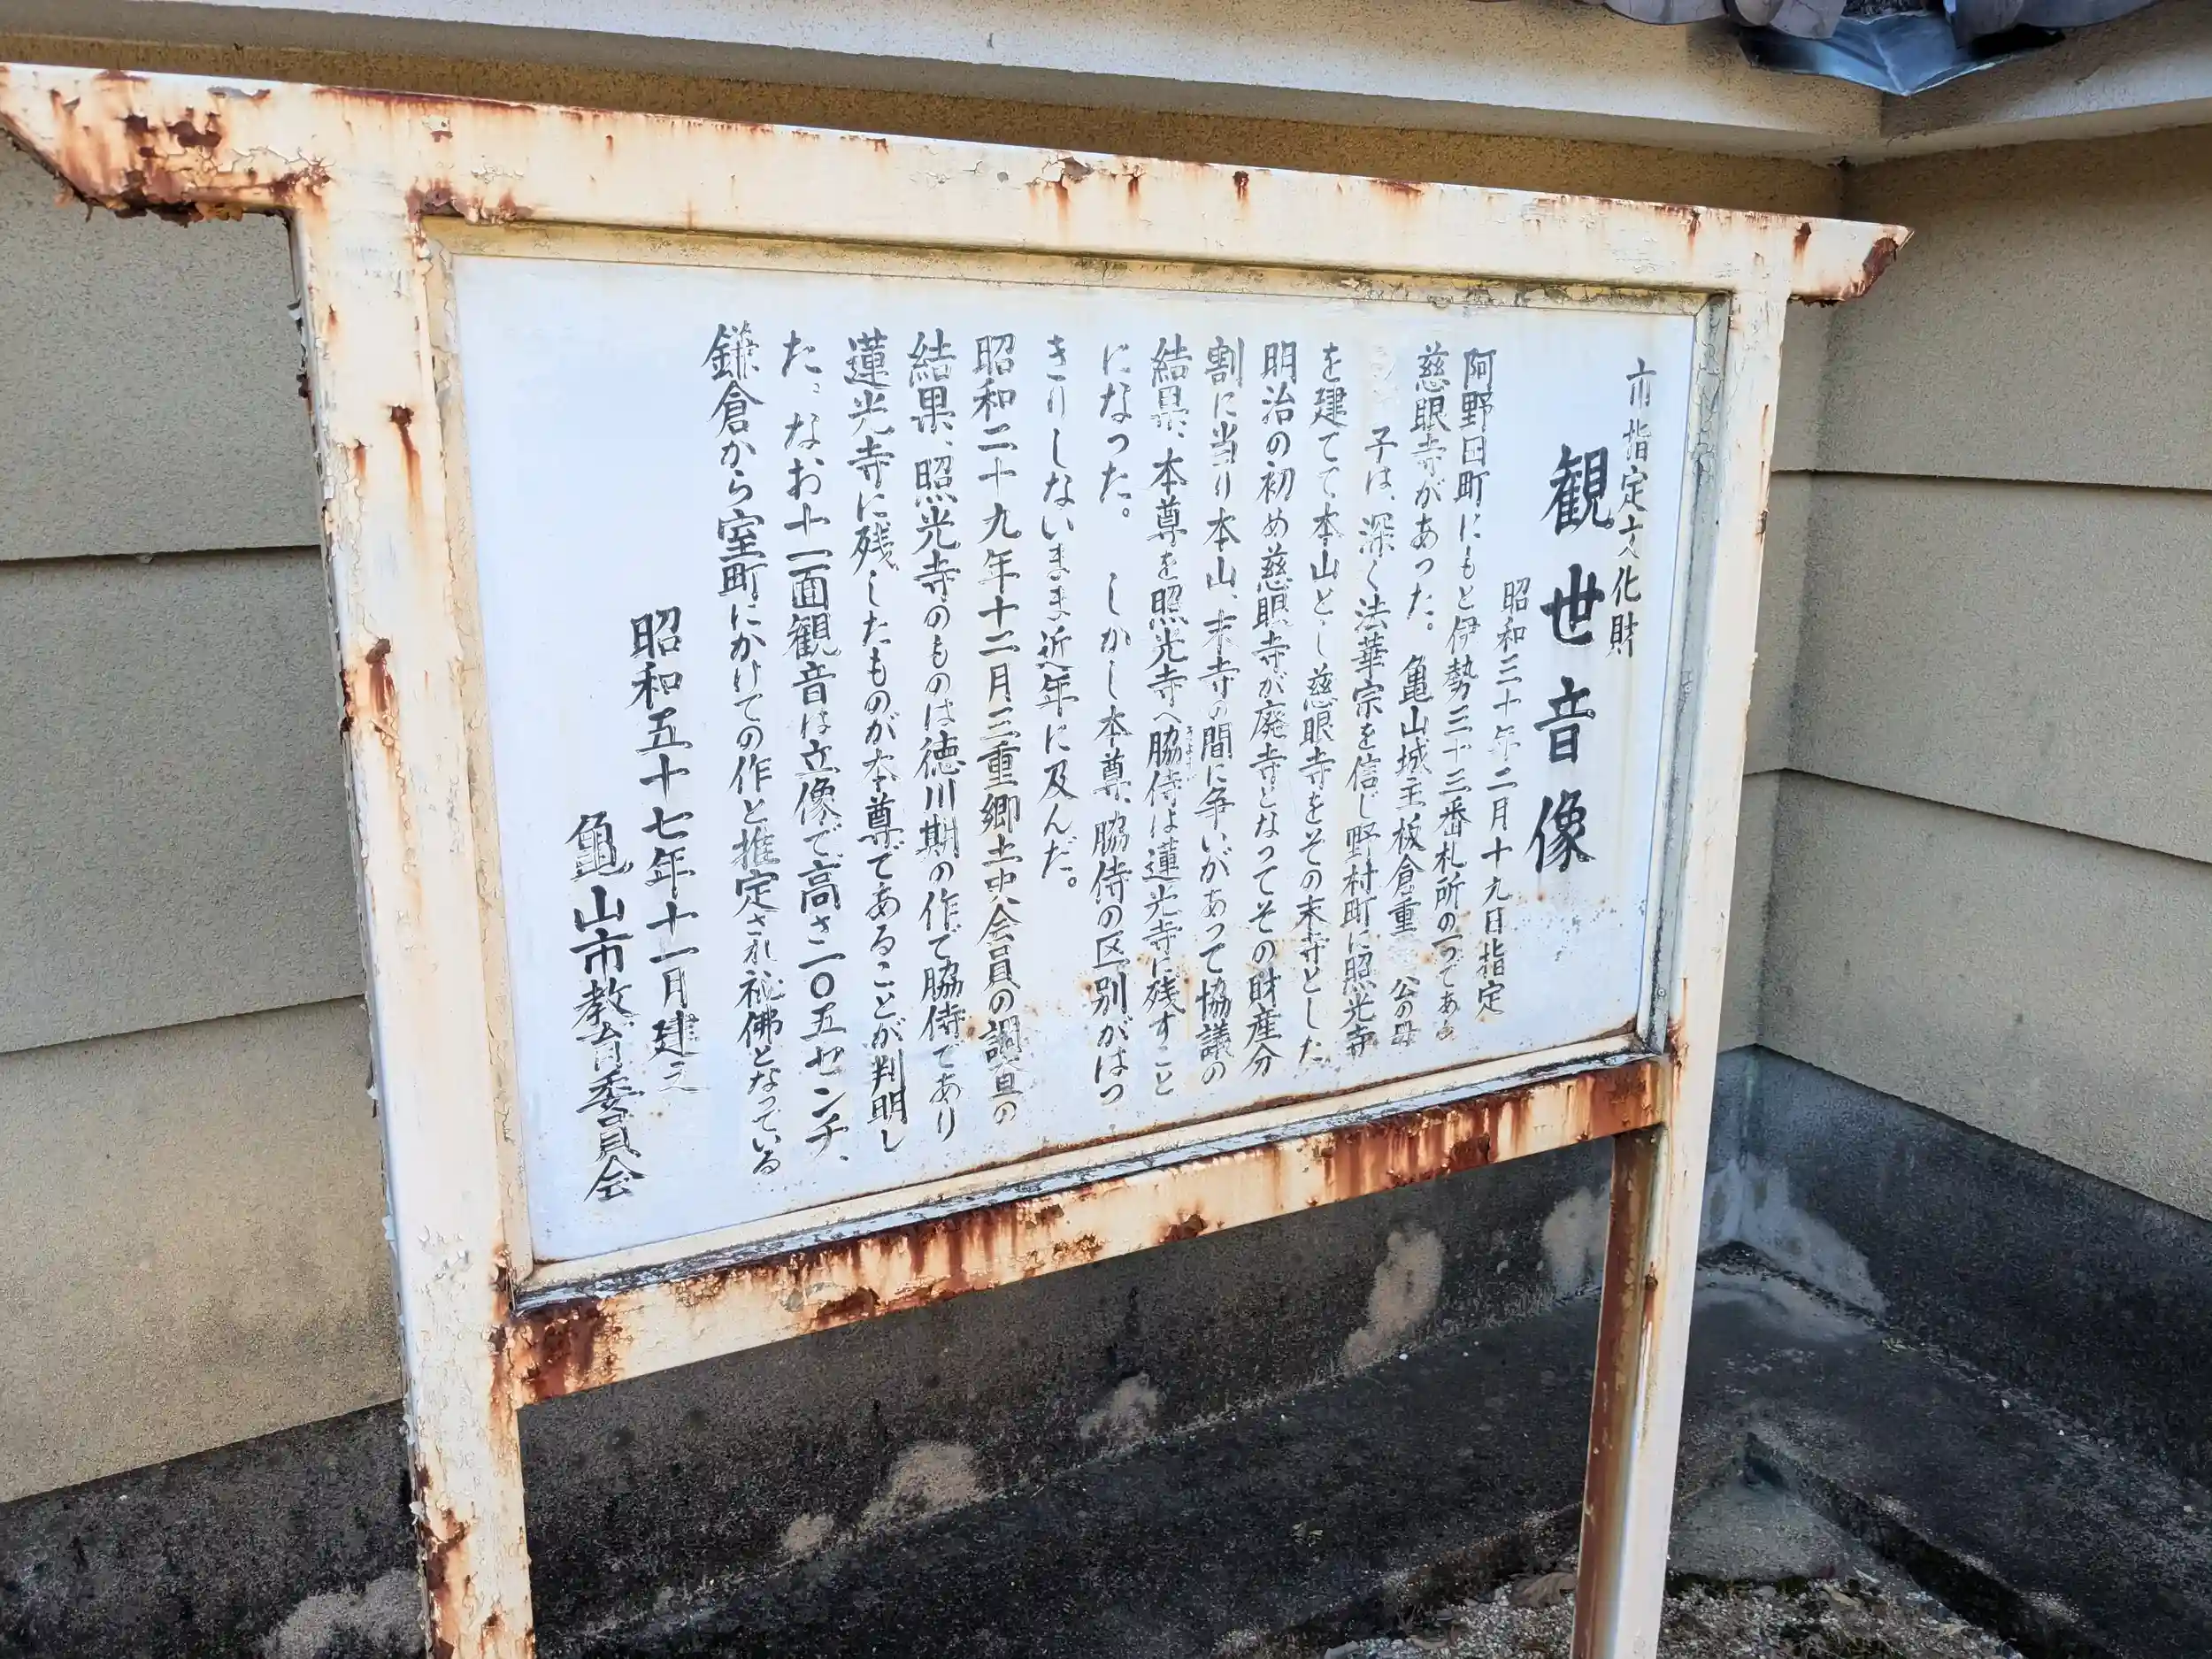 市指定文化財
観世音像
昭和三十年二月十九日指定
阿野田町にもと伊勢三十三番札所の一つである
慈眼寺があった。亀山城主板倉重 公の母
子は、深く法華宗を信じ野村町に照光寺
を建てて本山とし慈眼寺をその末寺とした
明治の初め慈眼寺が廃寺となってその財産分
割に当り本山、末寺の間に争いがあって協議の
結果、本尊を照光寺へ脇侍は蓮光寺に残すこと
になった。しかし本尊、脇侍の区別がはっ
きりしないまま近年に及んだ。
昭和二十九年十二月三重郷土史会員の調査の
結果、照光寺のものは徳川期の作で脇侍であり
蓮光寺に残したものが本尊であることが判明し
た。なお十一面観音は立像で高さ二〇五センチ、
鎌倉から室町にかけての作と推定され秘佛となっている
昭和五十七年十一月建之
亀山市教育委員会